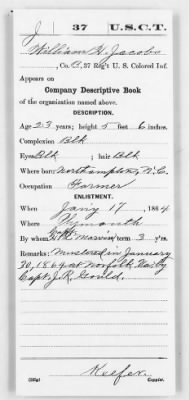 J 37 U.S.C.T.
William H. Jacobs
, Co. B, 37 Reg't U. S. Colored Inf.
Appears on
Company Descriptive Book
of the organization named above.
DESCRIPTION.
Age 23 years; height 5 feet 6 inches.
Complexion Blk
Eyes Blk ; hair Blk
Where born Northampton, N.C.
Occupation Farmer
ENLISTMENT.
When Jan'y 17, 1864
Where Plymouth
By whom term 3 y'rs.
Remarks: Mustered in January
30, 1864 at Norfolk, Va. by
Capt J.R. Gould.
Keefer
Copyist.